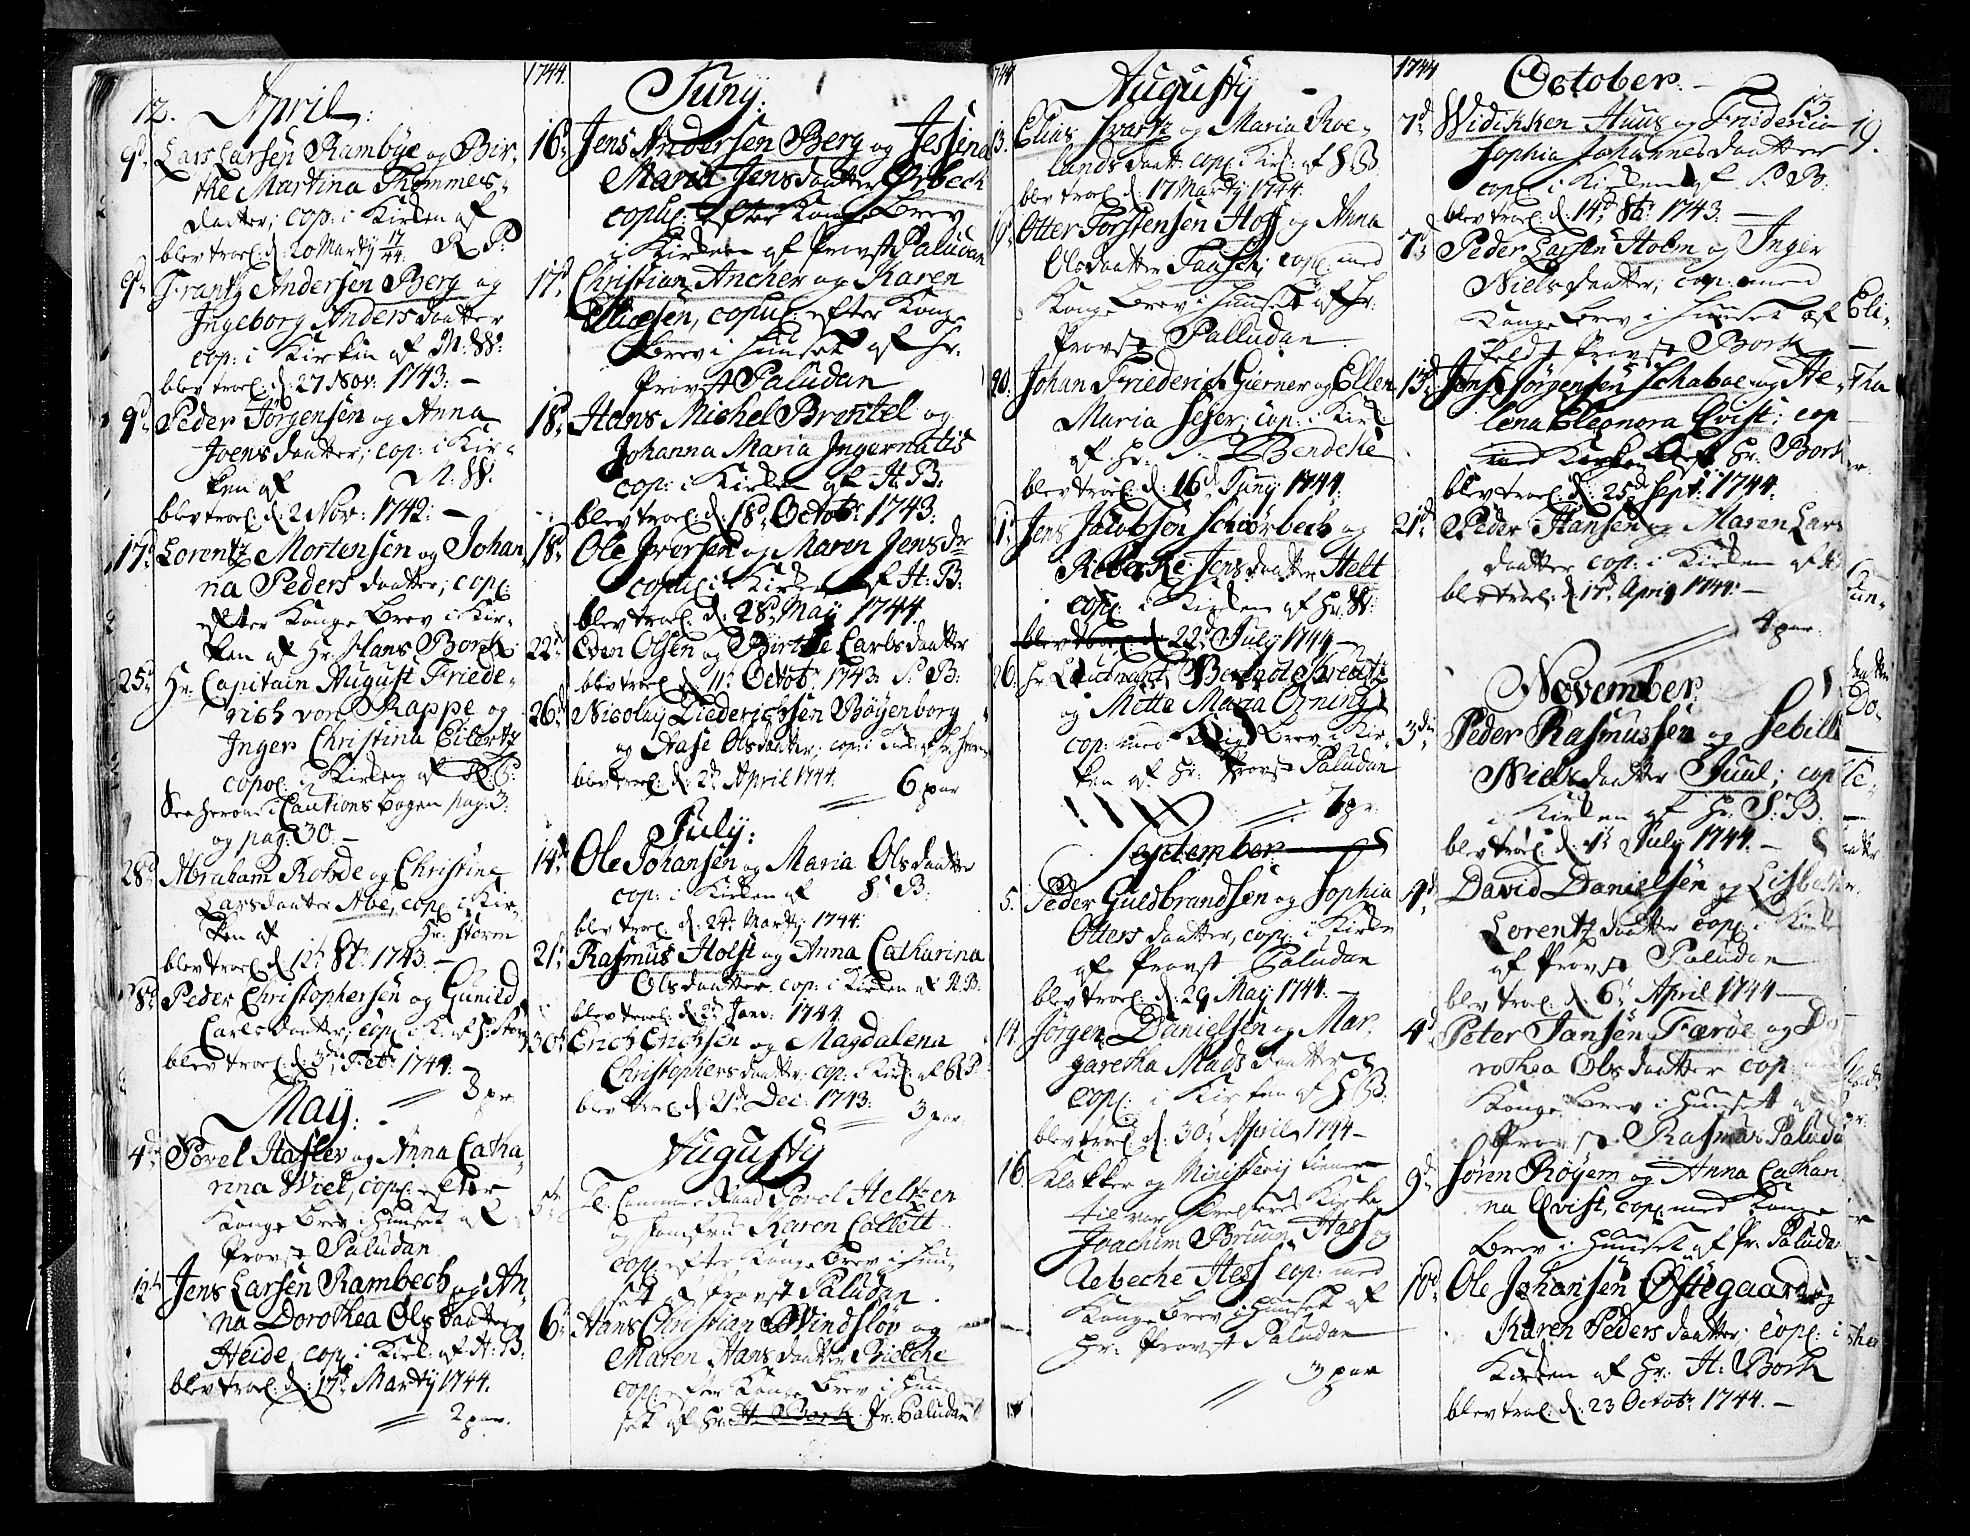 12. April:
9d Lars Larsen Rambÿe og Bir-
the Martina Thommes-
daatter; cop: i Kirken af
blev trol: d: 20 Martÿ 17/44. R P:
9d Frantz Andersen Berg og
Ingeborg Anders daatter
cop: i Kirken af M: W:
blev trol: d: 27 Nov: 1743: —
9d Peder Jörgensen og Anna
Joens daatter; cop: i Kir-
ken af M: W:
blev trol: d: 2 Nov: 1742: —
17d Lorentz Mortensen og Johan
na Peders daatter; cop:
efter Konge Brev i Kir-
ken af Hr: Hans Bork
25d Hr: Capitain August Friede-
rich von Rappe og
Inger Christina Eilertz
copol: i Kirken af R P:
See herom i Cautions bogen pag: 3:
og pag: 30 —
28d Abraham Rohde og Christine
Lars daatter Aboe, cop: i Kir-
ken af Hr: Storm
blev trol: d: 12 1743 —
28d Peder Christophersen og Gunild
Carls daatter; cop: i K: af H: Storm
blev trol: d: 3die Feb: 1744. —
3 pr
May:
4d Povel Hasler og Anna Catha-
rina Wiel, cop: efter
Konge Brev i Huuset af
Provst Paludan
12t Jens Larsen Rambech og An-
na Dorothea Ols daatter
Heide, cop: i Kirk: af H: B:
blev trol: d: 17d Martÿ 1744.
2 par.
1744.
Junÿ:
16d Jens Andersen Berg og Jessina
Maria Jens daatter Orbech
copul: efter Konge Brev
i Kirken af Provst Paludan
17d Christian Ancher og Karen
Eliesen, copul: efter Konge
Brev i Huuset af Hr:
Provst Paludan
18d Hans Michel Brentel og
Johanna Maria Ingernatis
cop: i Kirken af H: B:
blev trol: d: 18d Octobr: 1743:
18d Ole Iversen og Maren Jens dr
copul: i Kirken af H: B:
blev trol: d: 28d May 1744.
22d Eden Olsen og Birthe Carls daatter
blev trol: d: 11t Octobr: 1743: S: B:
26d Nicolaÿ Diederichsen Böyenborg
og Aase Ols daatter; cop: i Kirk: af Hr: Storm
blev trol: d: 2d April 1744.
6 par
July:
14d Ole Johansen og Maria Ols daatter
cop: i Kirken af S: B:
blev trol: d: 24d Martÿ 1744:
21d Rasmus Holst og Anna Catharina
Ols daatter, cop: i Kirken af H: B:
blev trol: d: 2d Janr: 1744.
30t Erich Erichsen og Magdalena
Christophers daatter; cop: i Kirk: af R P
blev trol: d: 21d Dec: 1743:
3 par
Augustÿ
5te Cammer Raad Povel Heltzen
og Jomfru Karen Collett
cop: efter Konge Brev i Huu-
set af Provst Paludan
6t Hans Christian Windslöv og
Maren Hans daatter Bielche
cop: efter Konge Brev i Huu
set af Hr: H: Bork Pr: Paludan
Augustÿ
13. Elias Svartz og Maria Roe-
lands daatt: cop: i Kirk: af S B
blev trol: d: 17 Martÿ 1744.
19 Otter Torstensen Hoff og Anna
Ols daatter Fausch; cop: med
Konge Brev i Huuset af Hr:
Provst Palludan
20. Johan Friederich Gierner og Ellen
Maria Seser; cop: i Kirk:
af Hr: Bendeke
blev trol: d: 16d Junÿ 1744.
21. Jens Jacobsen Schiörbech og
Rebecke Jens daatter Helt
cop: i Kirken af Hr: W:
blev trol: d: 22d Julÿ 1744 —
26. Hr Lieutnant Berndt Kreutz
og Mette Maria Orning
cop: med Konge Brev i Kir-
ken af Hr: Provst Paludan
7 pr:
September
5. Peder Guldbrandsen og Sophia
Otters daatter, cop: i Kirken
af Provst Paludan
blev trol: d: 29 May 1744. —
14. Jörgen Danielsen og Mar-
garetha Mads daatter
cop: i Kirken af H: B:
blev trol: d: 30t April 1744 —
16. Klokker og Ministerij tiener
til vor Frelseres Kirke
Joachim Bruun Hass og
Rebeche Hass cop: med
Konge Brev i Huuset af
Hr: Provst Paludan
3 par
1744
October. —
13
7d Widikken Huus og Friderica
Sophia Johannes daatter
cop: i Kirken af S: B:
blev trol: d: 14d 1743. —
7d Peder Larsen Holm og Inger
Niels daatter; cop: med
Konge Brev i Huuset af
Provst Bork
13d Jens Jörgensen Schaboe og He-
lena Eleonora Qvist: cop
Kirken af Hr: Bork
blev trol: d: 25d Sept: 1744.
21d Peder Hansen og Maren Lars
daatter cop: i Kirken af H
blev trol: d: 17d April 1744. —
4 par.
November.
3die Peder Rasmussen og Sebille
Niels daatter Juul; cop
i Kirken af Hr. S: B.
blev trol: d: 1t July 1744. —
4d David Danielsen og Lisbeth
Lorentz daatter cop: i Kirken
af Provst Paludan
blev trol: d: 6t April 1744 —
4d Peter Jansen Færöe og Do
rothea Ols daatter cop:
Konge Brev i Huuset af
Provst Rasmus Paluda
9d Sören Röyem og Anna Cathari
na Qvist, cop: med Konge
Brev i Huuset af Pr: Paluda
10d Ole Johansen Östegaard og
Karen Peders daatter; cop: i
Kirken af Hr: H: Bork
blev trol: d: 23 Octobr: 1744. —
19.